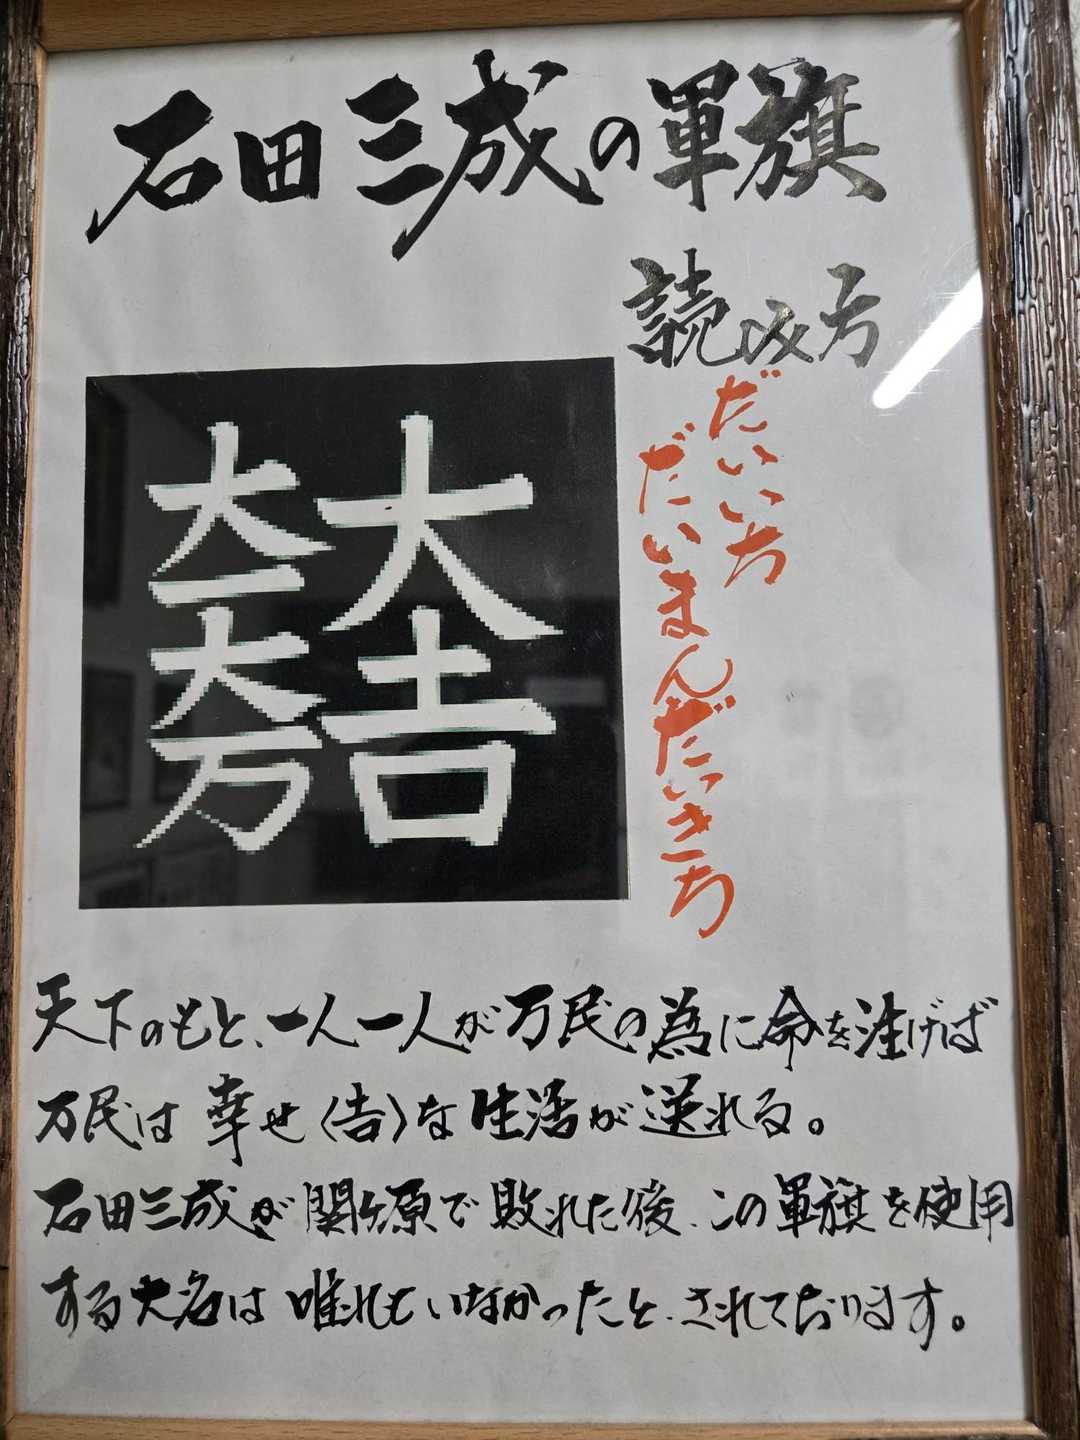 石田三成の軍旗
読み方
だいいち
だいまんだいきち
大一大万
大吉
天下のもと、一人一人が万民の為に命を注げば
万民は幸せ〈吉〉な生活が送れる。
石田三成が関ヶ原で敗れた後、この軍旗を使用
する大名は唯れもいなかったと、されております。